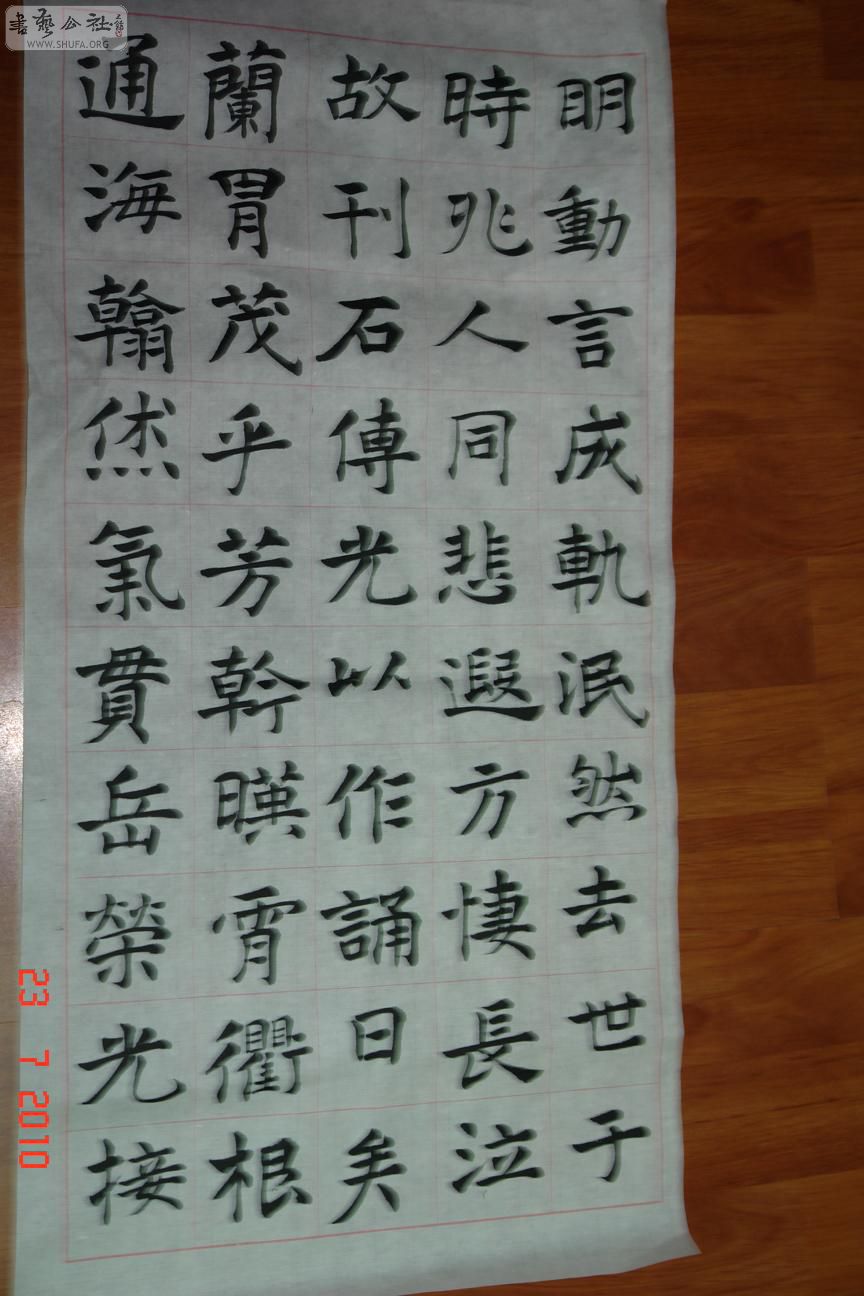 眀動言成軌泯然去世于
時兆人同悲遐方悽長泣
故刊石傳光以作誦曰矣
蘭胃茂乎芳幹暎霄衢根
通海翰烋氣貫岳榮光接
書藝公社
WWW.SHUFA.ORG
23 7 2010